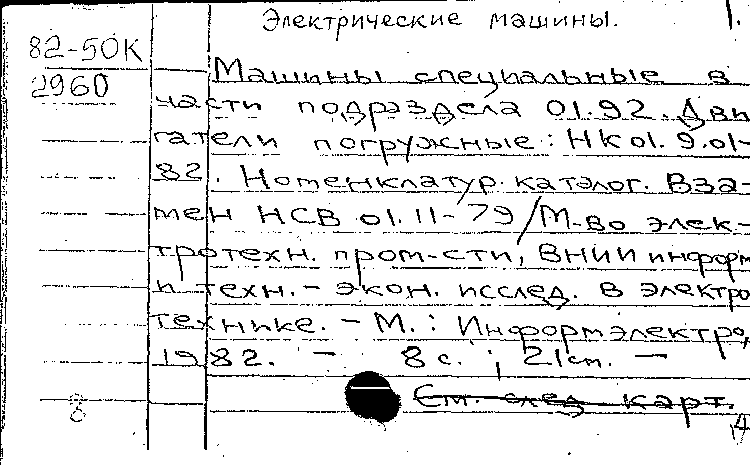 Электрические машины. 1.
82-50К
2960
Машины специальные в
части подраздела 01.92. Дви
гатели погружные: НК 01.9.01-
82. Номенклатур. каталог. Вза-
мен НСВ 01.11-79/М-во элек-
тротехн. пром-сти, ВНИИ информ
и техн.-экон. исслед. в электро
технике. - М.: Информэлектро,
1982. - 8 с.; 21 см. -
См. след. карт.